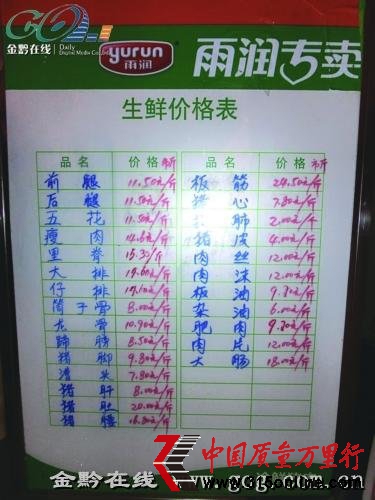 金黔在线
Daily
Digital Media
yurun
雨润
雨润专卖
生鲜价格表
品名 价格 品名 价格
前腿 11.50元/斤 板筋 24.50元/斤
后腿 11.50元/斤 猪心 7.80元/斤
五花 11.50元/斤 肺 2.00元/斤
瘦肉 猪皮 4.00元/斤
里脊 15.30/斤 肉丝 12.00元/斤
大排 肉沫 12.00元/斤
仔排 板油
筒子骨 8.00元/斤 杂油 6.00元/斤
龙骨 10.90元/斤 肥肉
蹄膀 8.50元/斤 肉片 12.00元/斤
猪脚 9.80元/斤 大肠 18.00元/斤
漕头 7.80元/斤
猪肝 8.00元/斤
猪肚 20.00元/斤
猪腰 16.80元/斤
中国质量万里行
金黔在线